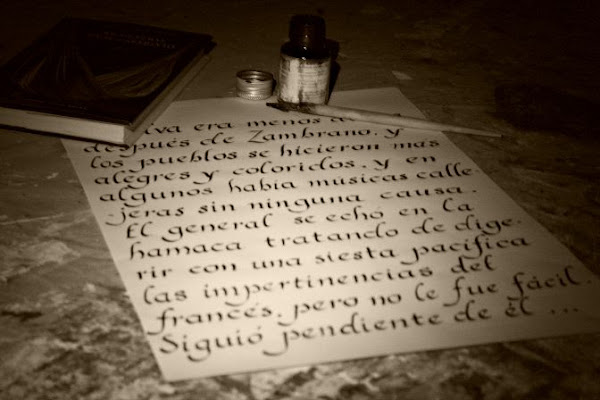 iva era menos d
después de Zambrano, y
los pueblos se hicieron más
alegres y coloridos, y en
algunos había músicas calle-
jeras sin ninguna causa.
El general se echó en la
hamaca tratando de dige-
rir con una siesta pacífica
las impertinencias del
francés, pero no le fue fácil.
Siguió pendiente de él ...